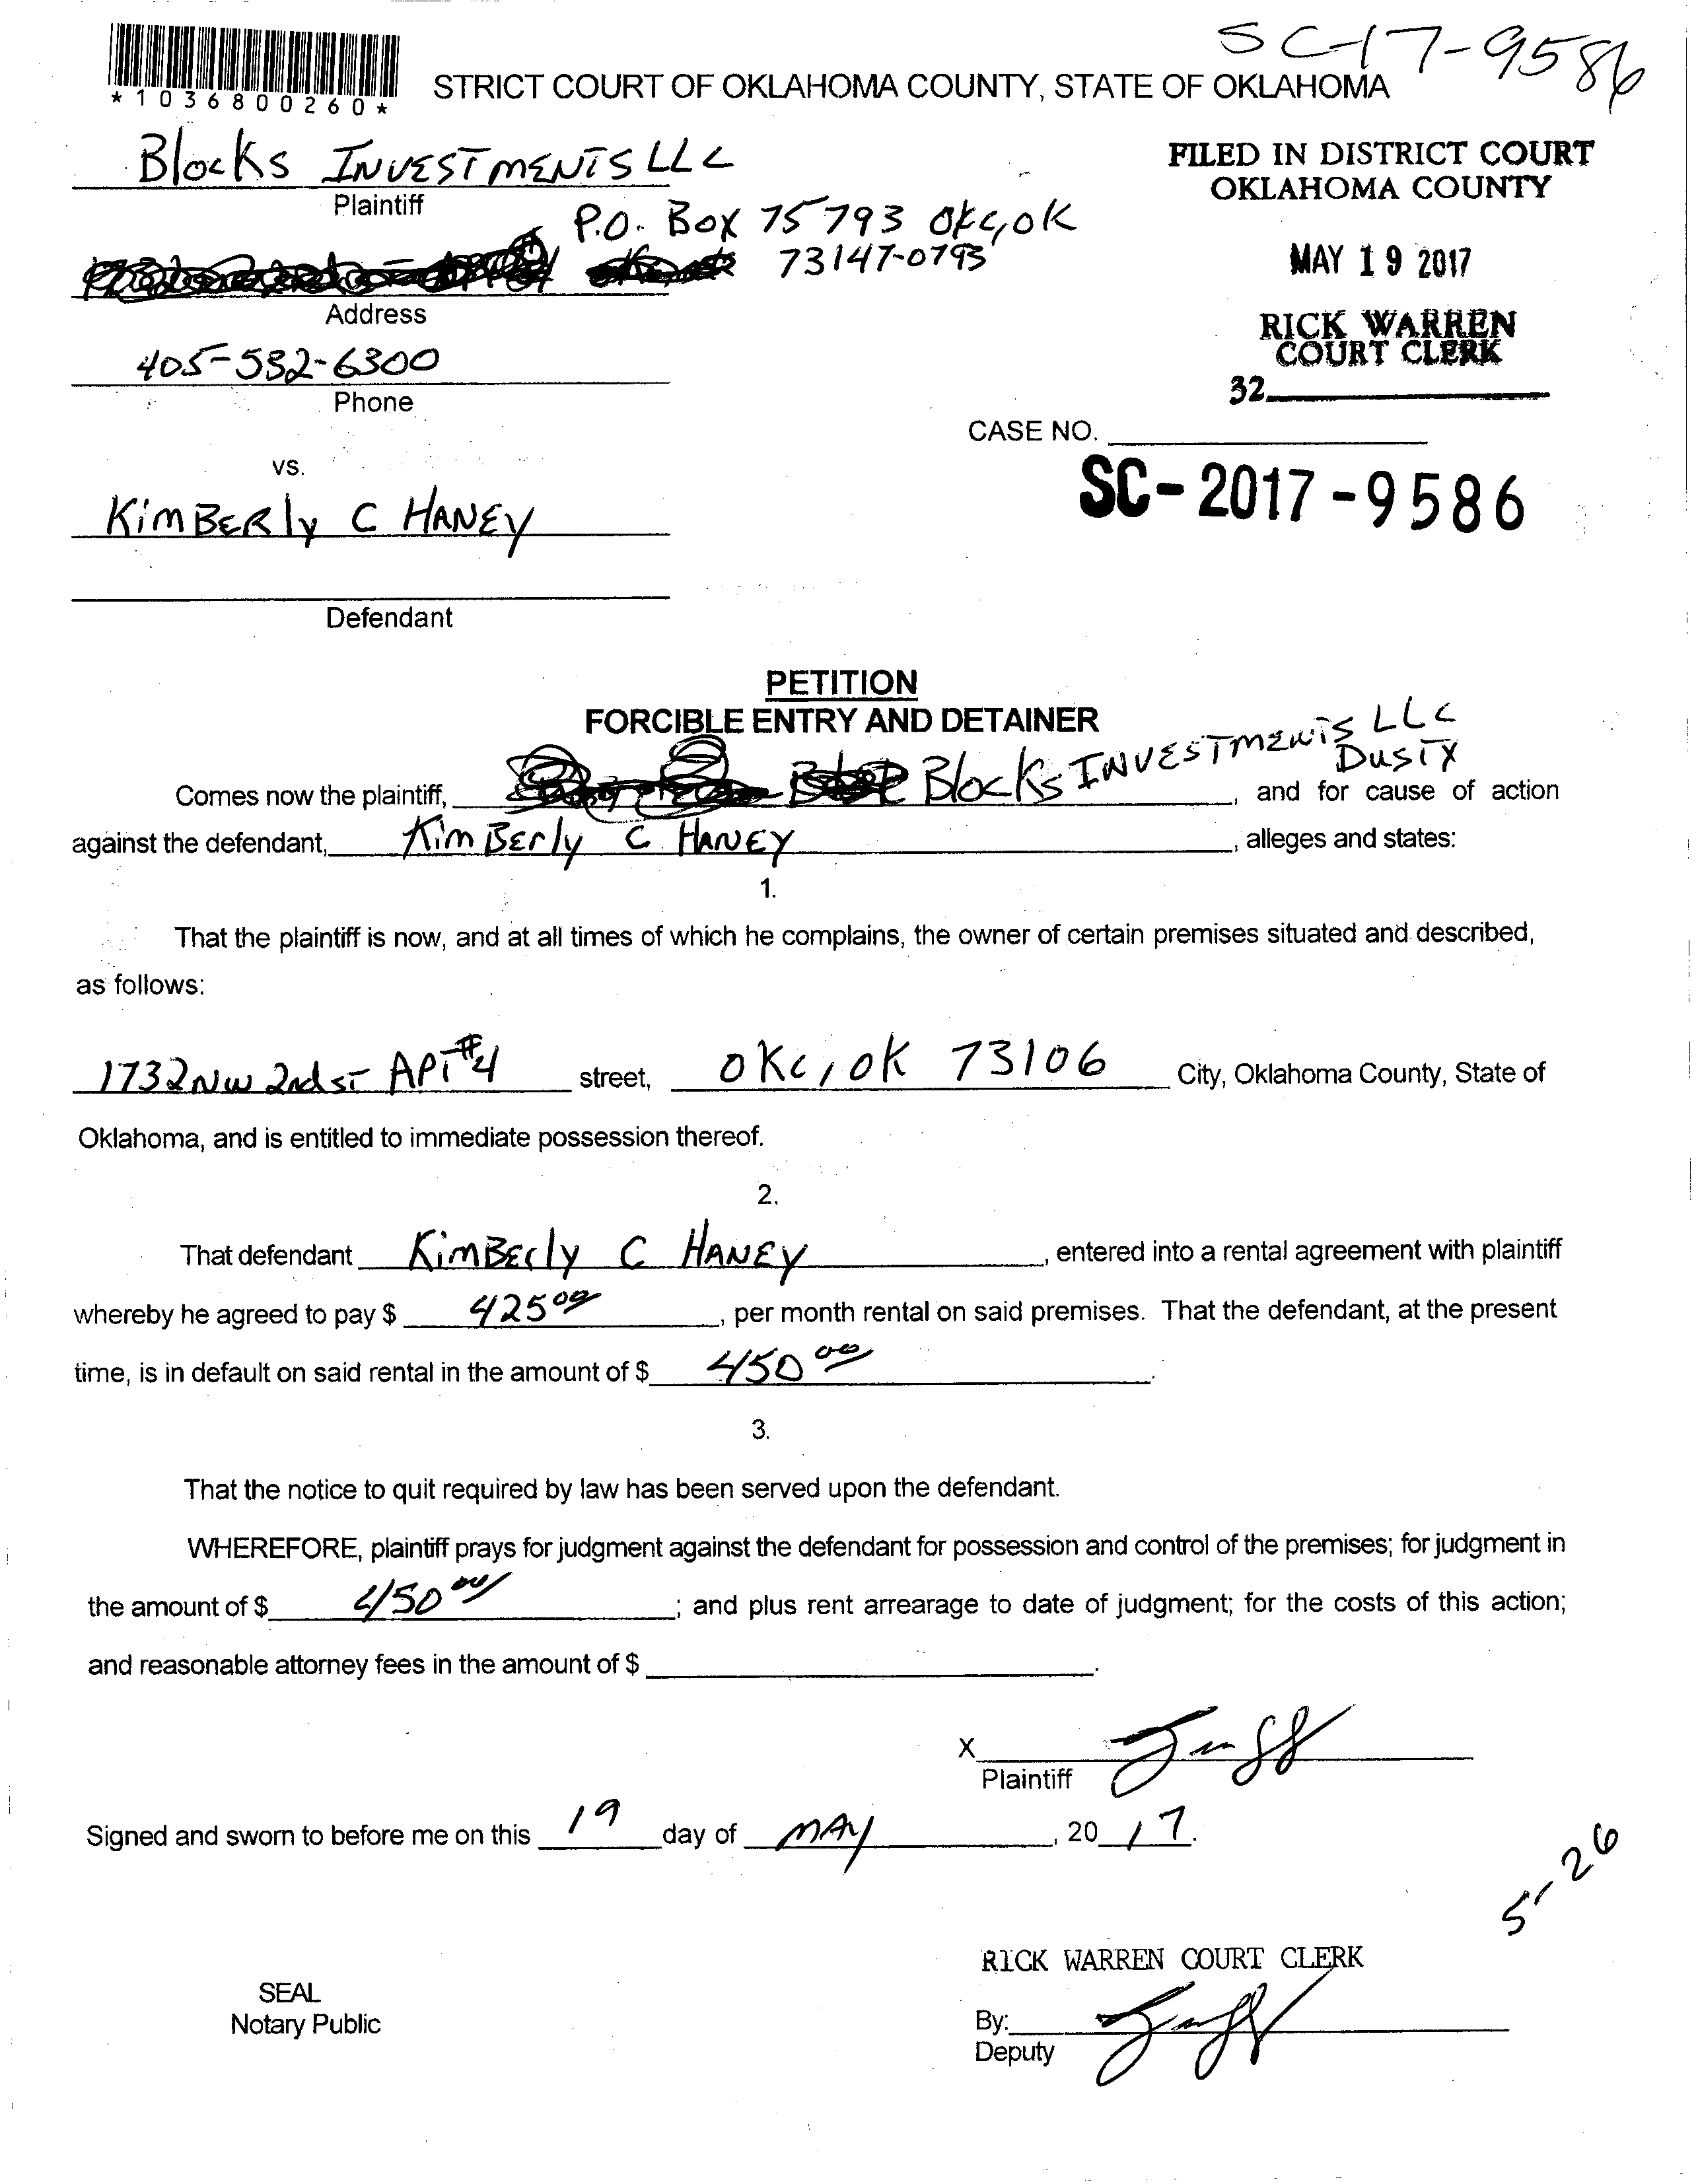 SC-17-9586
*1036800260*
STRICT COURT OF OKLAHOMA COUNTY, STATE OF OKLAHOMA
Blocks INVESTMENTS LLC
Plaintiff
FILED IN DISTRICT COURT
OKLAHOMA COUNTY
P.O. Box 75793 OKC, OK
73147-0793
MAY 19 2017
Address
RICK WARREN
COURT CLERK
405-532-6300
Phone
32
CASE NO.
vs.
SC-2017-9586
KimBERly C HANEY
Defendant
PETITION
FORCIBLE ENTRY AND DETAINER
Comes now the plaintiff, Blocks INVESTMENTS LLC , and for cause of action
against the defendant, KimBerly C HANEY , alleges and states:
1.
That the plaintiff is now, and at all times of which he complains, the owner of certain premises situated and described,
as follows:
1732 NW 2nd ST APT #4 street, OKC, OK 73106 City, Oklahoma County, State of
Oklahoma, and is entitled to immediate possession thereof.
2.
That defendant KimBErly C HANEY , entered into a rental agreement with plaintiff
whereby he agreed to pay $ 425 00 , per month rental on said premises. That the defendant, at the present
time, is in default on said rental in the amount of $ 450 00 .
3.
That the notice to quit required by law has been served upon the defendant.
WHEREFORE, plaintiff prays for judgment against the defendant for possession and control of the premises; for judgment in
the amount of $ 450 00 ; and plus rent arrearage to date of judgment; for the costs of this action;
and reasonable attorney fees in the amount of $ .
X
Plaintiff
Signed and sworn to before me on this 19 day of MAY , 20 17.
5-26
RICK WARREN COURT CLERK
SEAL
Notary Public
By:
Deputy